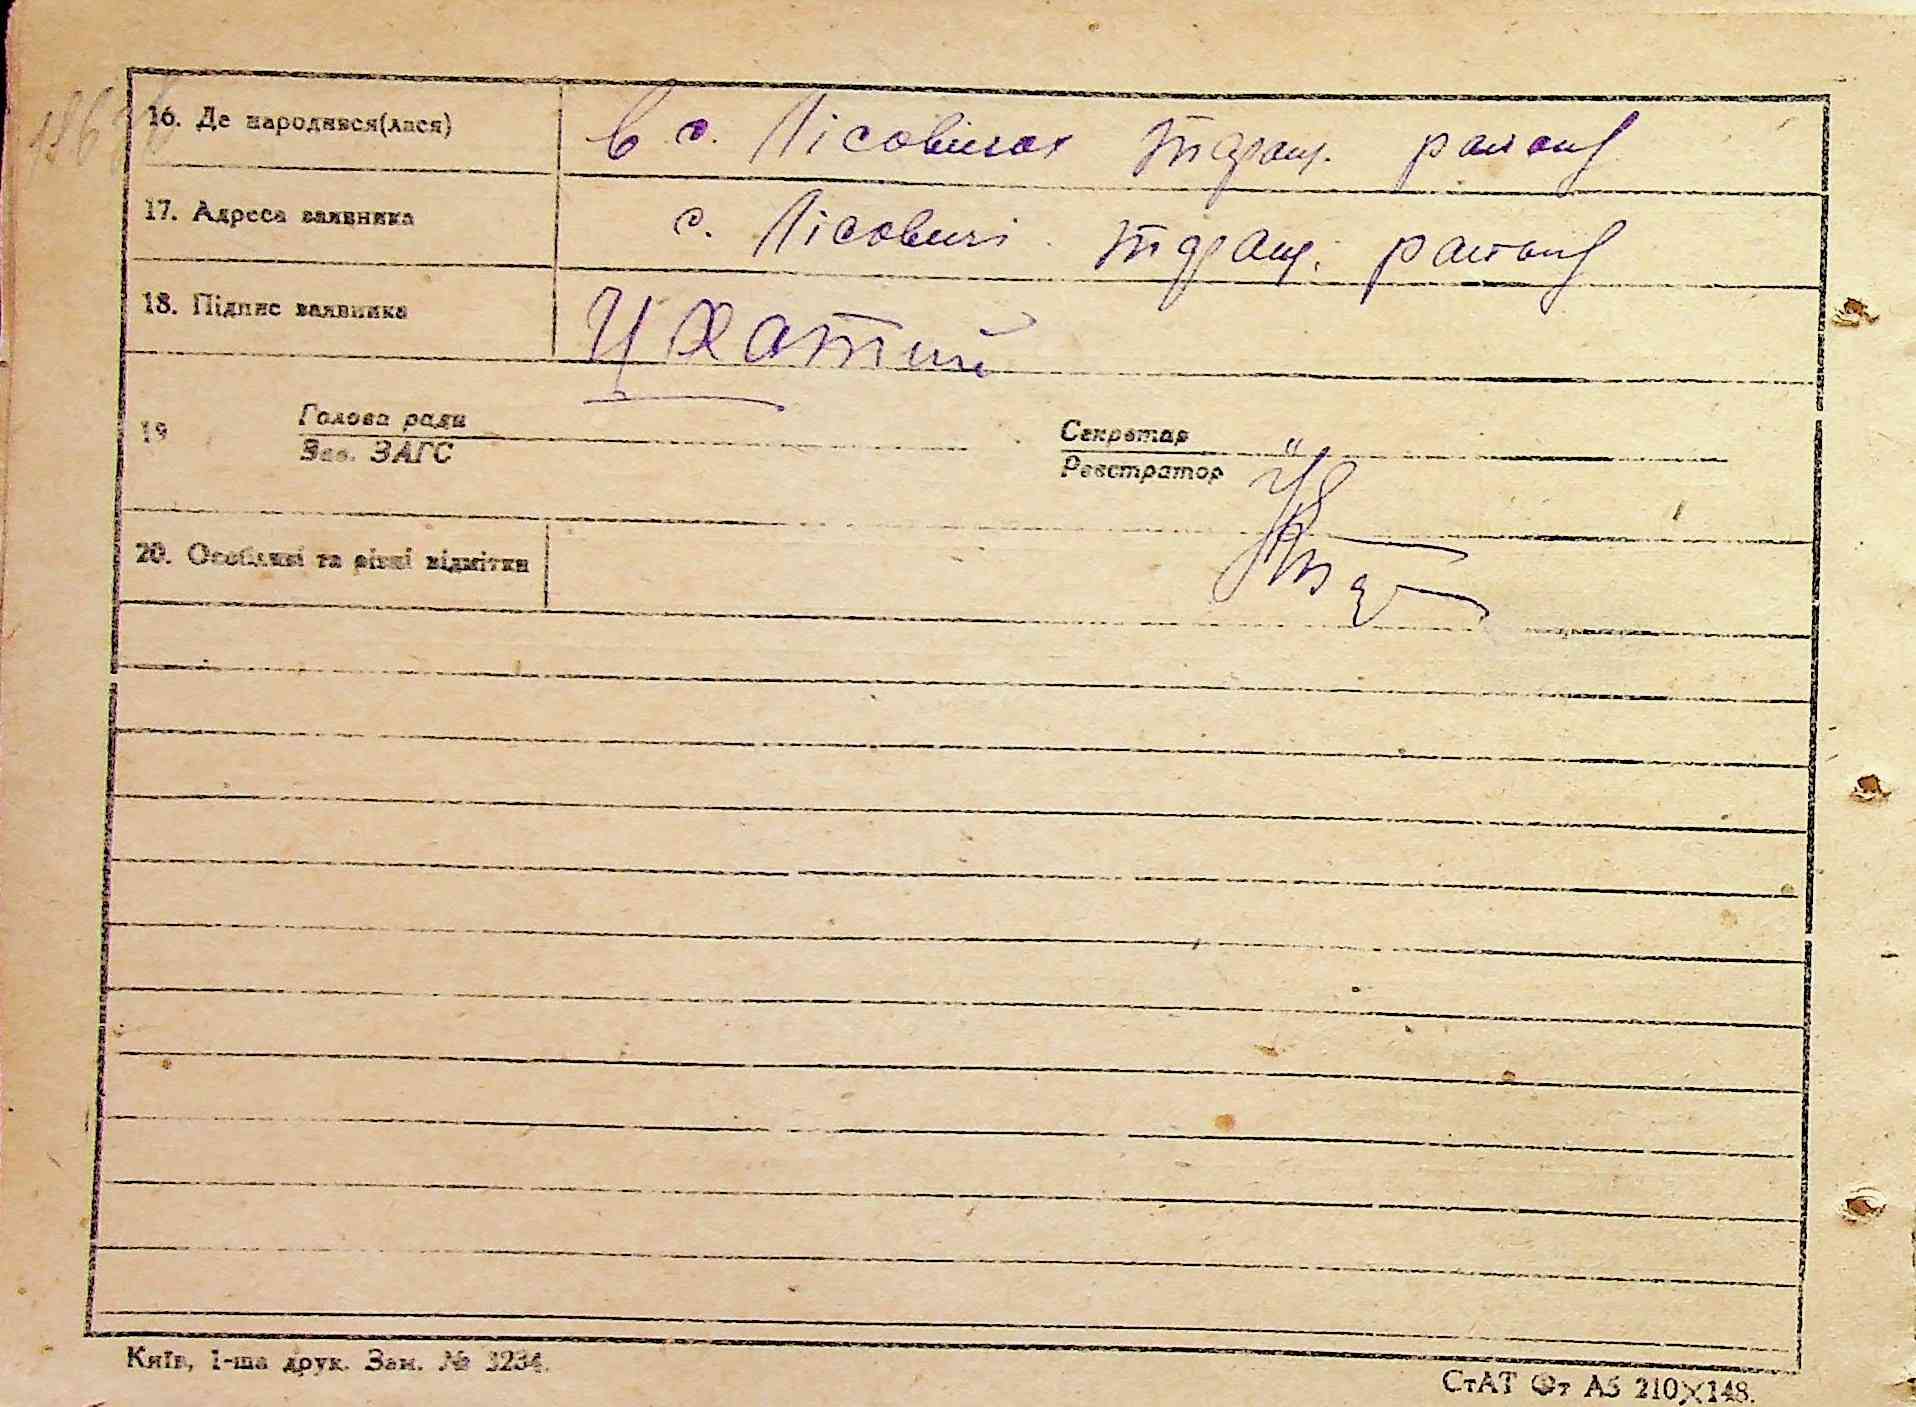 16. Де народився(лася)
в с. Лісовичах тдращ. району
17. Адреса заявника
с. Лісовичі тдращ. району
18. Підпис заявника
Цхатий
19 Голова ради
Зав. ЗАГС
Секретар
Реєстратор
20. Особливі та різні відмітки
Київ, 1-ша друк. Зам. № 3234.
СтАТ Фт А5 210×148.